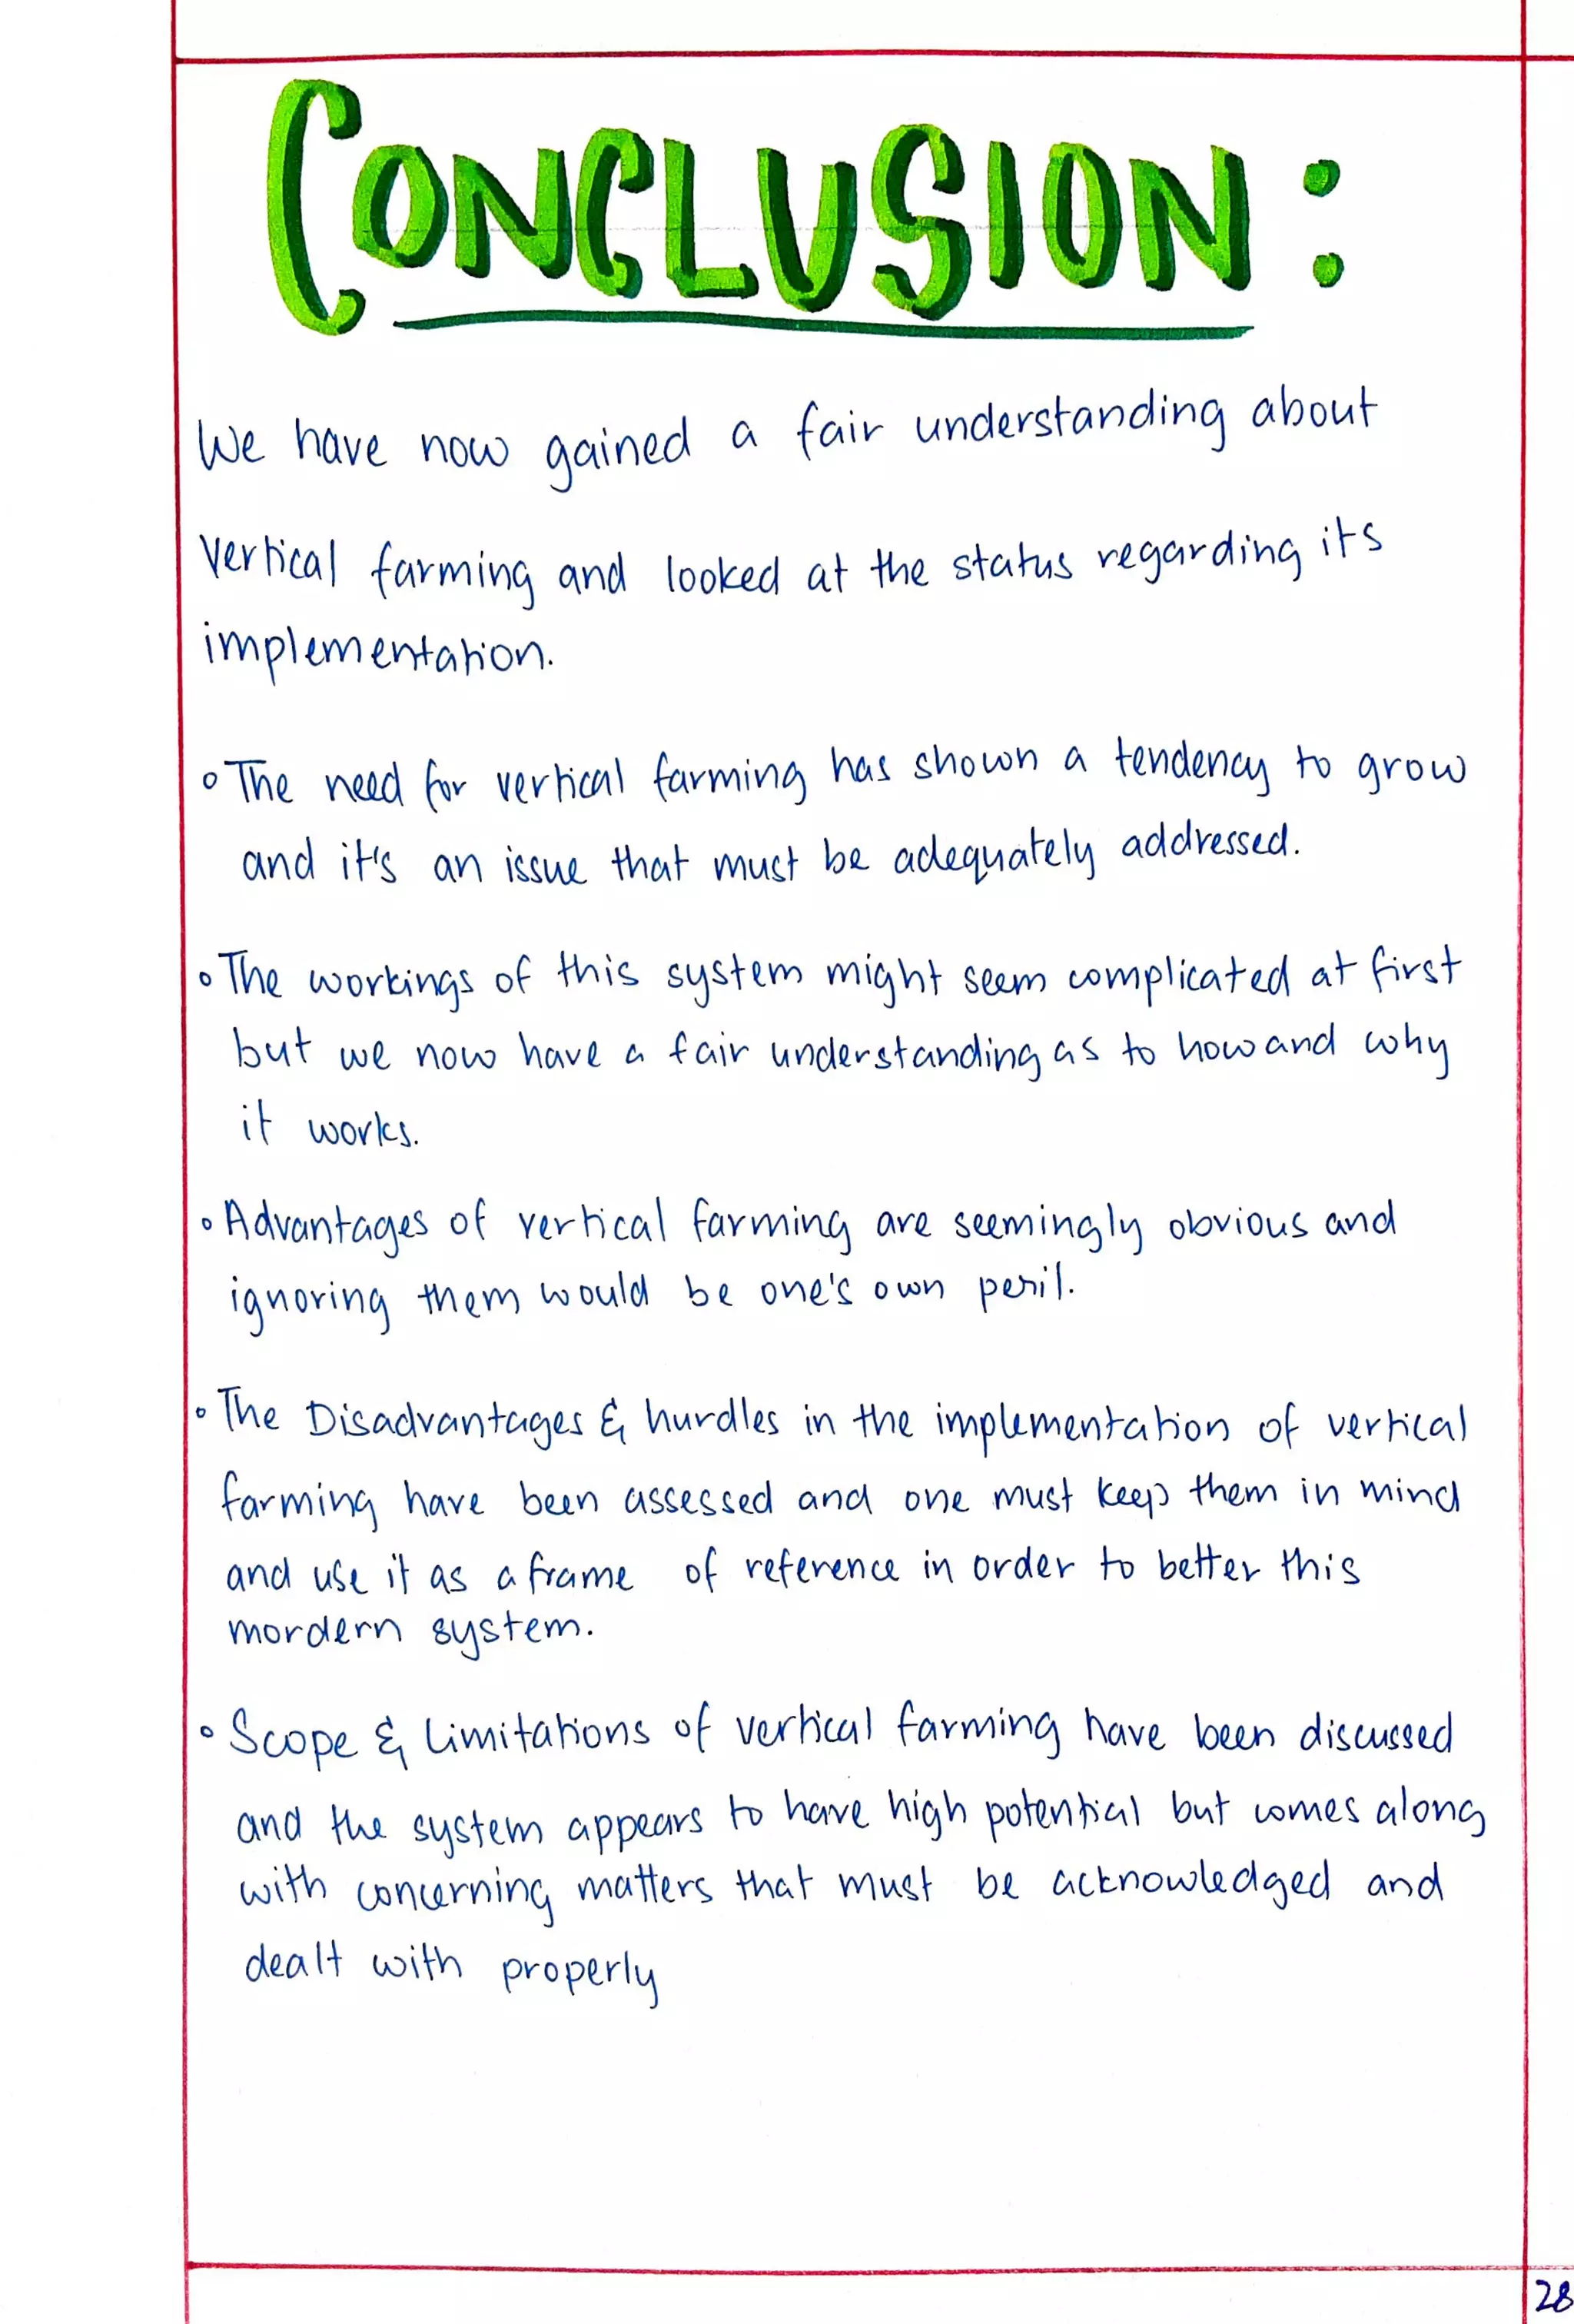 CONCLUSION:
We have now gained a fair understanding about
Vertical farming and looked at the status regarding its
implementation.
∘ The need for vertical farming has shown a tendency to grow
and it's an issue that must be adequately addressed.
∘ The workings of this system might seem complicated at first
but we now have a fair understanding as to how and why
it works.
∘ Advantages of vertical farming are seemingly obvious and
ignoring them would be one's own peril.
∘ The Disadvantages & hurdles in the implementation of vertical
farming have been assessed and one must keep them in mind
and use it as a frame of reference in order to better this
mordern system.
∘ Scope & Limitations of vertical farming have been discussed
and the system appears to have high potential but comes along
with concerning matters that must be acknowledged and
dealt with properly
28